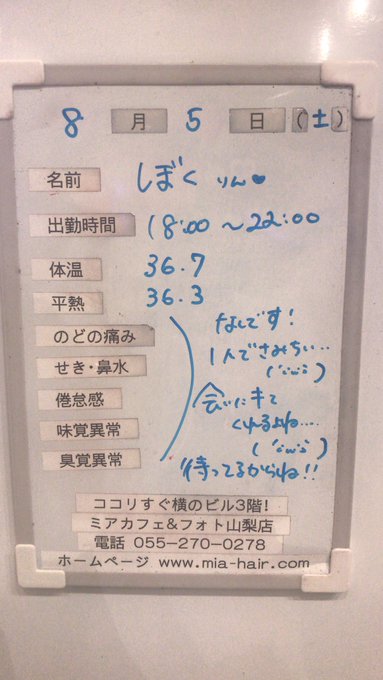 8月5日(土)
名前 しぼく りん♥
出勤時間 18:00 〜22:00
体温 36.7
平熱 36.3
のどの痛み
せき・鼻水
倦怠感
味覚異常
臭覚異常
なしです!
1人でさみちい...
(´;ω;`)
会いにキて
くれるよね....
(´;ω;`)
待ってるからね!!
ココリすぐ横のビル3階!
ミアカフェ&フォト山梨店
電話 055-270-0278
ホームページ www.mia-hair.com